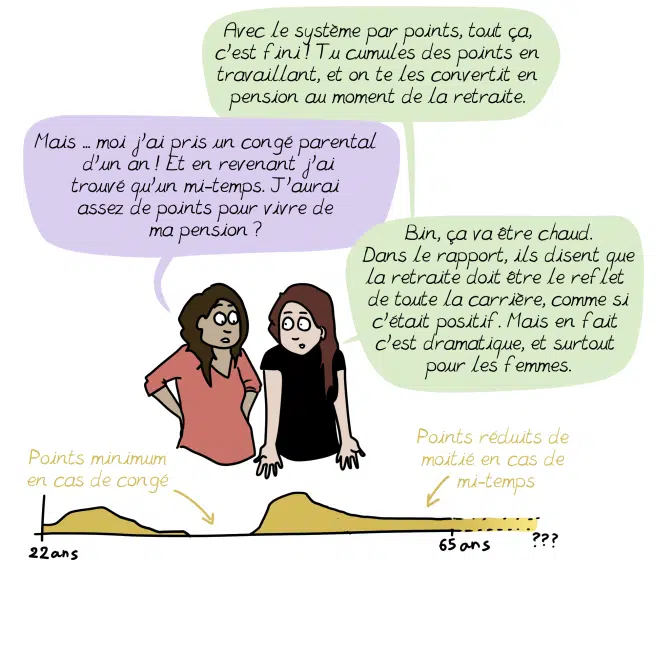 Avec le système par points, tout ça,
c'est fini ! Tu cumules des points en
travaillant, et on te les convertit en
pension au moment de la retraite.
Mais ... moi j'ai pris un congé parental
d'un an ! Et en revenant j'ai
trouvé qu'un mi-temps. J'aurai
assez de points pour vivre de
ma pension ?
Bin, ça va être chaud.
Dans le rapport, ils disent que
la retraite doit être le reflet
de toute la carrière, comme si
c'était positif. Mais en fait
c'est dramatique, et surtout
pour les femmes.
Points minimum
en cas de congé
Points réduits de
moitié en cas de
mi-temps
22 ans
65 ans
???